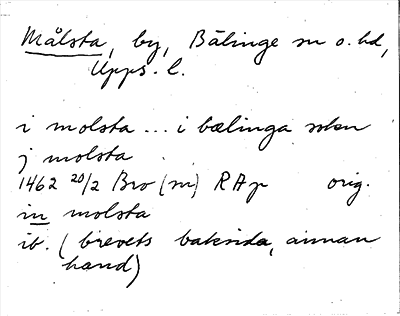 Målsta, by, Bälinge sn o. hd,
Upps. l.
i molsta ... i bælinga sokn
j molsta
1462 20/2 Bro (m) RAp orig.
in molsta
ib. (brevets baksida, annan
hand)